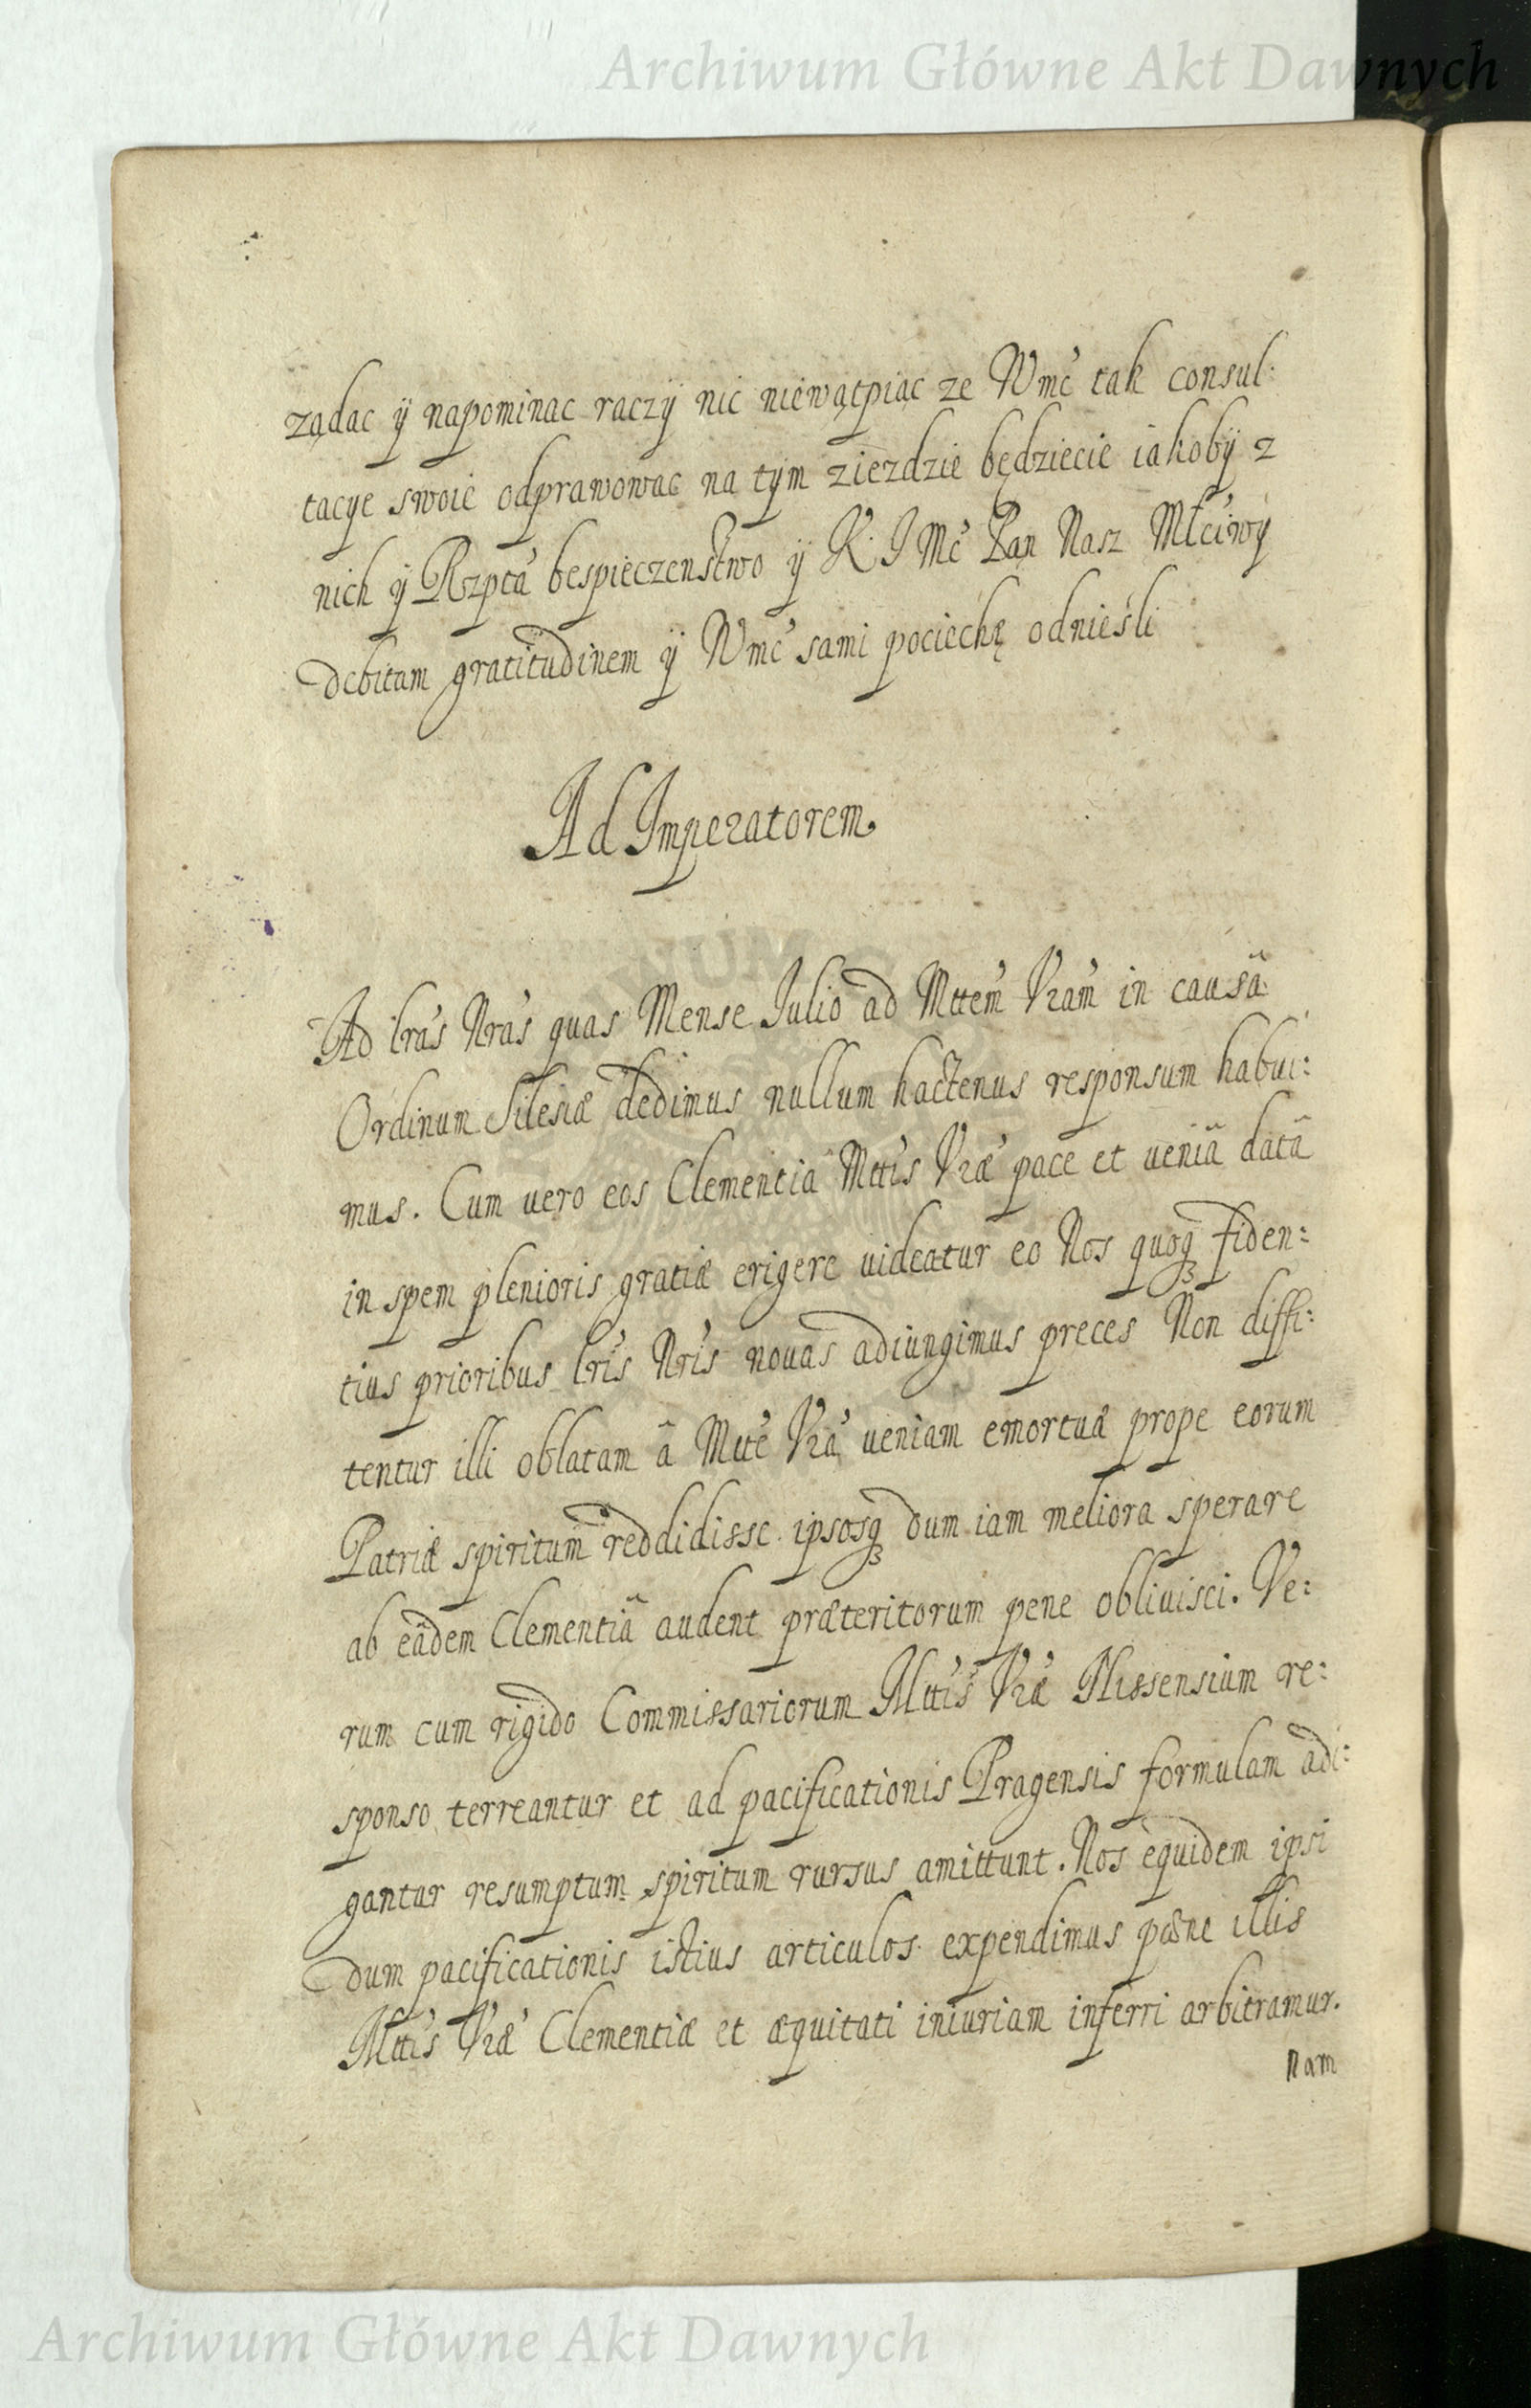 Archiwum Główne Akt Dawnych
ządac ÿ napominac raczÿ nic niewątpiąc ze Wmć tak consul:
tacÿe swoie odprawowac na tÿm ziezdzie będziecie iakobÿ z
nich ÿ Rzptá bespieczenstwo ÿ K. J Mć Pan Nasz Młćiwÿ
debitam gratitudinem ÿ Wmć sami pociechę odnieśli
Ad Imperatorem.
Ad lrás Nrás quas Mense Julio ad Mttem Vram in causâ
Ordinum Silesiæ dedimus nullum hactenus responsum habui:
mus. Cum uero eos Clementia Mttis Vræ pace et ueniâ datâ
in spem plenioris gratiæ erigere uideatur eo Nos quoqꝫ fiden:
tius prioribus lris Nris nouas adiungimus preces Non diffi:
tentur illi oblatam â Mtte Vrâ ueniam emortuæ prope eorum
Patriæ spiritum reddidisse ipsosqꝫ dum iam meliora sperare
ab eâdem Clementiâ audent præteritorum pene obliuisci. Ve:
rum cum rigido Commissariorum Mttis Vræ Nissensium re:
sponso terreantur et ad pacificationis Pragensis formulam adi:
gantur resumptum spiritum rursus amittunt. Nos equidem ipsi
dum pacificationis istius articulos expendimus pœne illis
Mttis Vræ Clementiæ et æquitati iniuriam inferri arbitramur.
Nam
Archiwum Główne Akt Dawnych